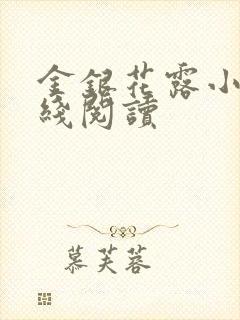 金銀花露小
綫閱讀
慕芙蓉